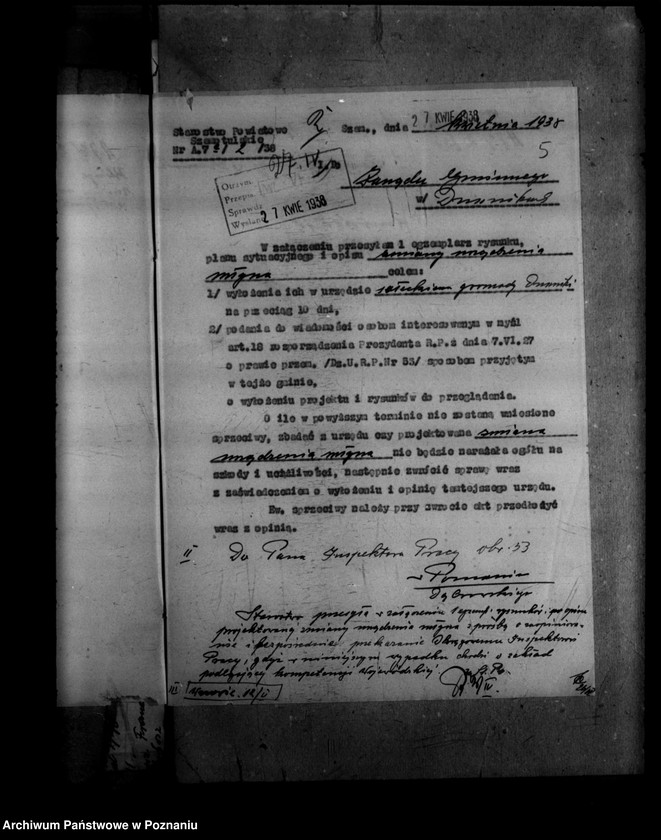 Starostwo Powiatowe
Szamotulskie
Nr A.V
/38
Szam., dnia 27 KWIE 1938 kwietnia 1938
5
Otrzym.
Przepis.
Sprawdz.
Wysłano 27 KWIE 1938
Zarządu Gminnego
w/ Dusznikach
W załączeniu przesyłam 1 egzemplarz rysunku,
planu sytuacyjnego i opisu zmiany urządzenia
młyna celem:
1/ wyłożenia ich w urzędzie sołeckim gromady Duszniki
na przeciąg 10 dni,
2/ podania do wiadomości osobom interesowanym w myśl
art.18 rozporządzenia Prezydenta R.P. z dnia 7.VI.27
o prawie przem. /Dz.U.R.P.Nr 53/ sposobem przyjętym
w tejże gminie,
o wyłożeniu projektu i rysunków do przeglądania.
O ile w powyższym terminie nie zostaną wniesione
sprzeciwy, zbadać z urzędu czy projektowana zmiana
urządzenia młyna nie będzie narażała ogółu na
szkody i uciążliwości, następnie zwrócić sprawę wraz
z zaświadczeniem o wyłożeniu i opinię tamtejszego urzędu.
Ew. sprzeciwy należy przy zwrocie akt przedłożyć
wraz z opinią.
II Do Pana Inspektora Pracy obw. 53
w Poznaniu
przesyła w załączeniu 1 egzempl. rysunków i po opisie
projektowanej zmiany urządzenia młyna z prośbą o zaopiniowa-
nie i bezpośrednie przekazanie Okręgowemu Inspektorowi
Pracy, gdyż w niniejszym wypadku chodzi o zakład
podlegający kompetencji Wojewódzkiej.
III
Archiwum Państwowe w Poznaniu